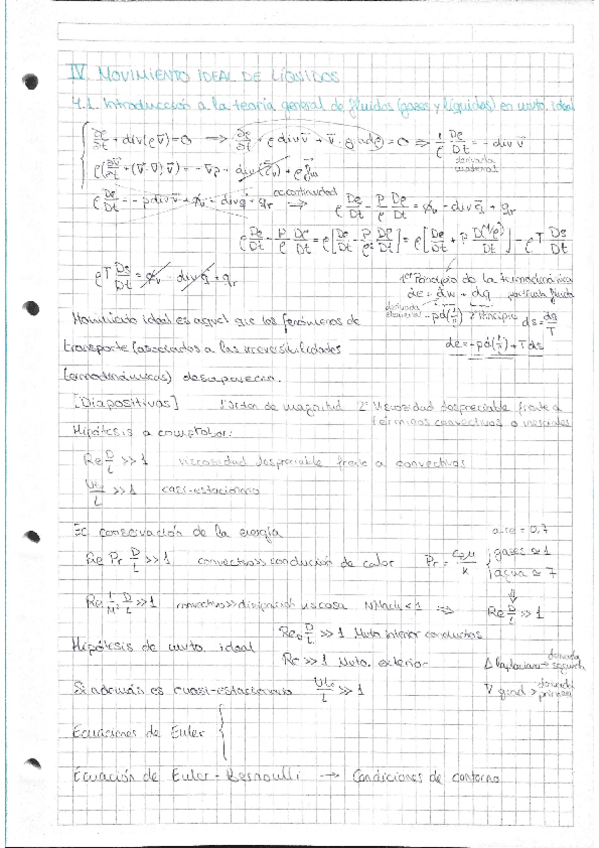 IV. MOVIMIENTO IDEAL DE LÍQUIDOS
4.1. Introducción a la teoría general de fluidos (gases y líquidos) en mvto. ideal
∂ρ/∂t + div(ρv̄) = 0 ⟹ ∂ρ/∂t + ρ div v̄ + v̄ · = 0 ⟹ 1/ρ Dρ/Dt = - div v̄
derivada
material
ρ(∂v̄/∂t + (v̄·∇)v̄) = -∇p + div + ρ
ρ De/Dt = - p div v̄ + ϕv - div q̄ + qr ec. continuidad ⟹ ρ De/Dt - p/ρ Dρ/Dt = ϕv - div q̄ + qr
ρ De/Dt - p/ρ Dρ/Dt = ρ[De/Dt - p/ρ² Dρ/Dt] = ρ[De/Dt + p D(1/ρ)/Dt] = ρ T Ds/Dt
ρT Ds/Dt = ϕv - div q̄ + qr
1er Principio de la termodinámica
de = dw + dq partícula fluida
derivada
material -pd(1/ρ) 2º Principio ds = dq/T
de = -pd(1/ρ) + Tds
Movimiento ideal es aquel que los fenómenos de
transporte (asociados a las irreversibilidades
termodinámicas) desaparecen.
[Diapositivas] 1º Orden de magnitud 2º Viscosidad despreciable frente a
términos convectivos o inerciales
Hipótesis a comprobar:
Re D/L >> 1 viscosidad despreciable frente a convectivos
Ut/L >> 1 casi-estacionario
Ec conservación de la energía
aire = 0,7
Re Pr D/L >> 1 convectivo >> conducción de calor Pr = cpμ/k { gases ≃ 1
agua ≃ 7
Re 1/M² D/L >> 1 convectivo >> disipación viscosa NMach < 1 ⟹ Re D/L >> 1
Hipótesis de mvto. ideal
ReD D/L >> 1 Mvto interior conductos
Re >> 1 Mvto. exterior
Δ laplaciano → derivada segunda
Si además es cuasi-estacionario Ut/L >> 1
∇ grad → derivada primera
Ecuaciones de Euler {
Ecuación de Euler - Bernoulli → Condiciones de contorno